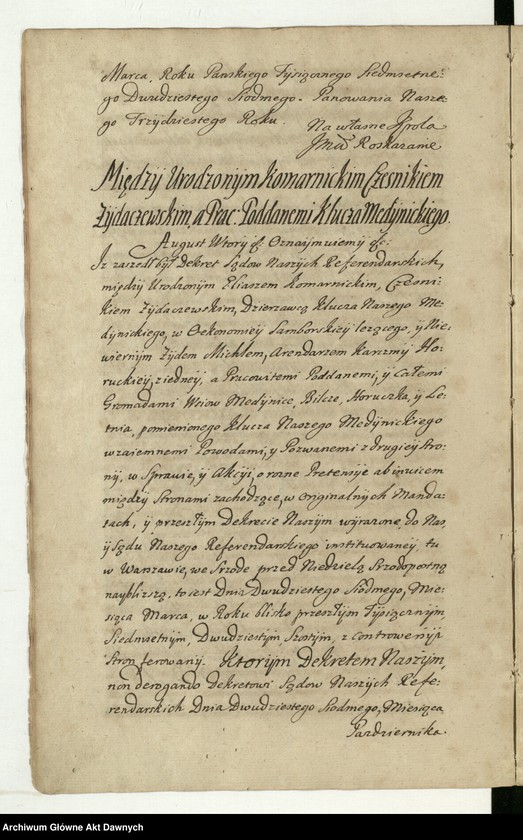 Marca, Roku Panskiego Tysiącznego Siedmsetne-
go Dwudziestego Siodmego. Panowania Nasze-
go Trzydziestego Roku. Na własne Krola
Jmći Roskazanie
Między Urodzonym Komarnickim Czesnikiem
Zydaczewskim, a Prac: Poddanemi Klucza Medynickiego.
August Wtory &c. Oznaymuiemy &c.
Iz zaszedł był Dekret Sądow Naszych Referendarskich,
między Urodzonym Eliaszem Komarnickim, Czesni-
kiem Zydaczewskim, Dzierzawcą Klucza Naszego Me-
dynickiego, w Oekonomiey Samborskiey lezącego, y Nie-
wiernym Zydem Michlem, Arendarzem Karczmy Ho-
ruckiey, z iedney, a Pracowitemi Poddanemi, y Całemi
Gromadami Wsiow Medynice, Bilcze, Horucka, y Le-
tnia, pomienionego Klucza Naszego Medynickiego
wzaiemnemi Powodami, y Pozwanemi z drugiey stro-
ny, w Sprawie, y Akcyi, o rozne Pretensye ab invicem
między Stronami zachodzące, w Originalnych Manda-
tach, y przeszłym Dekrecie Naszym wyrazone, do Nas,
y Sądu Naszego Referendarskiego instituowaney, tu
w Warszawie, we Srzode przed Niedzielą Srzodopostną
naybliszą, to iest Dnia Dwudziestego Siodmego, Mie-
siąca Marca, w Roku blisko przeszłym Tysiącznym
Siedmsetnym, Dwudziestym Szostym, z controwersyi
Stron ferowany. Ktorym Dekretem Naszym,
non derogando Dekretowi Sądow Naszych Refe-
rendarskich Dnia Dwudziestego Siodmego, Miesiąca
Pazdziernika
Archiwum Główne Akt Dawnych